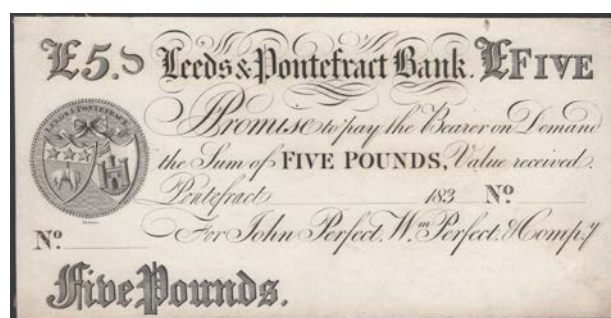 £5. Leeds & Pontefract Bank. £FIVE
LEEDS & PONTEFRACT
Promise to pay the Bearer on Demand
the Sum of FIVE POUNDS, Value received.
Pontefract 183 No.
No. For John Perfect, Wm Perfect, & Comp.y
Five Pounds.